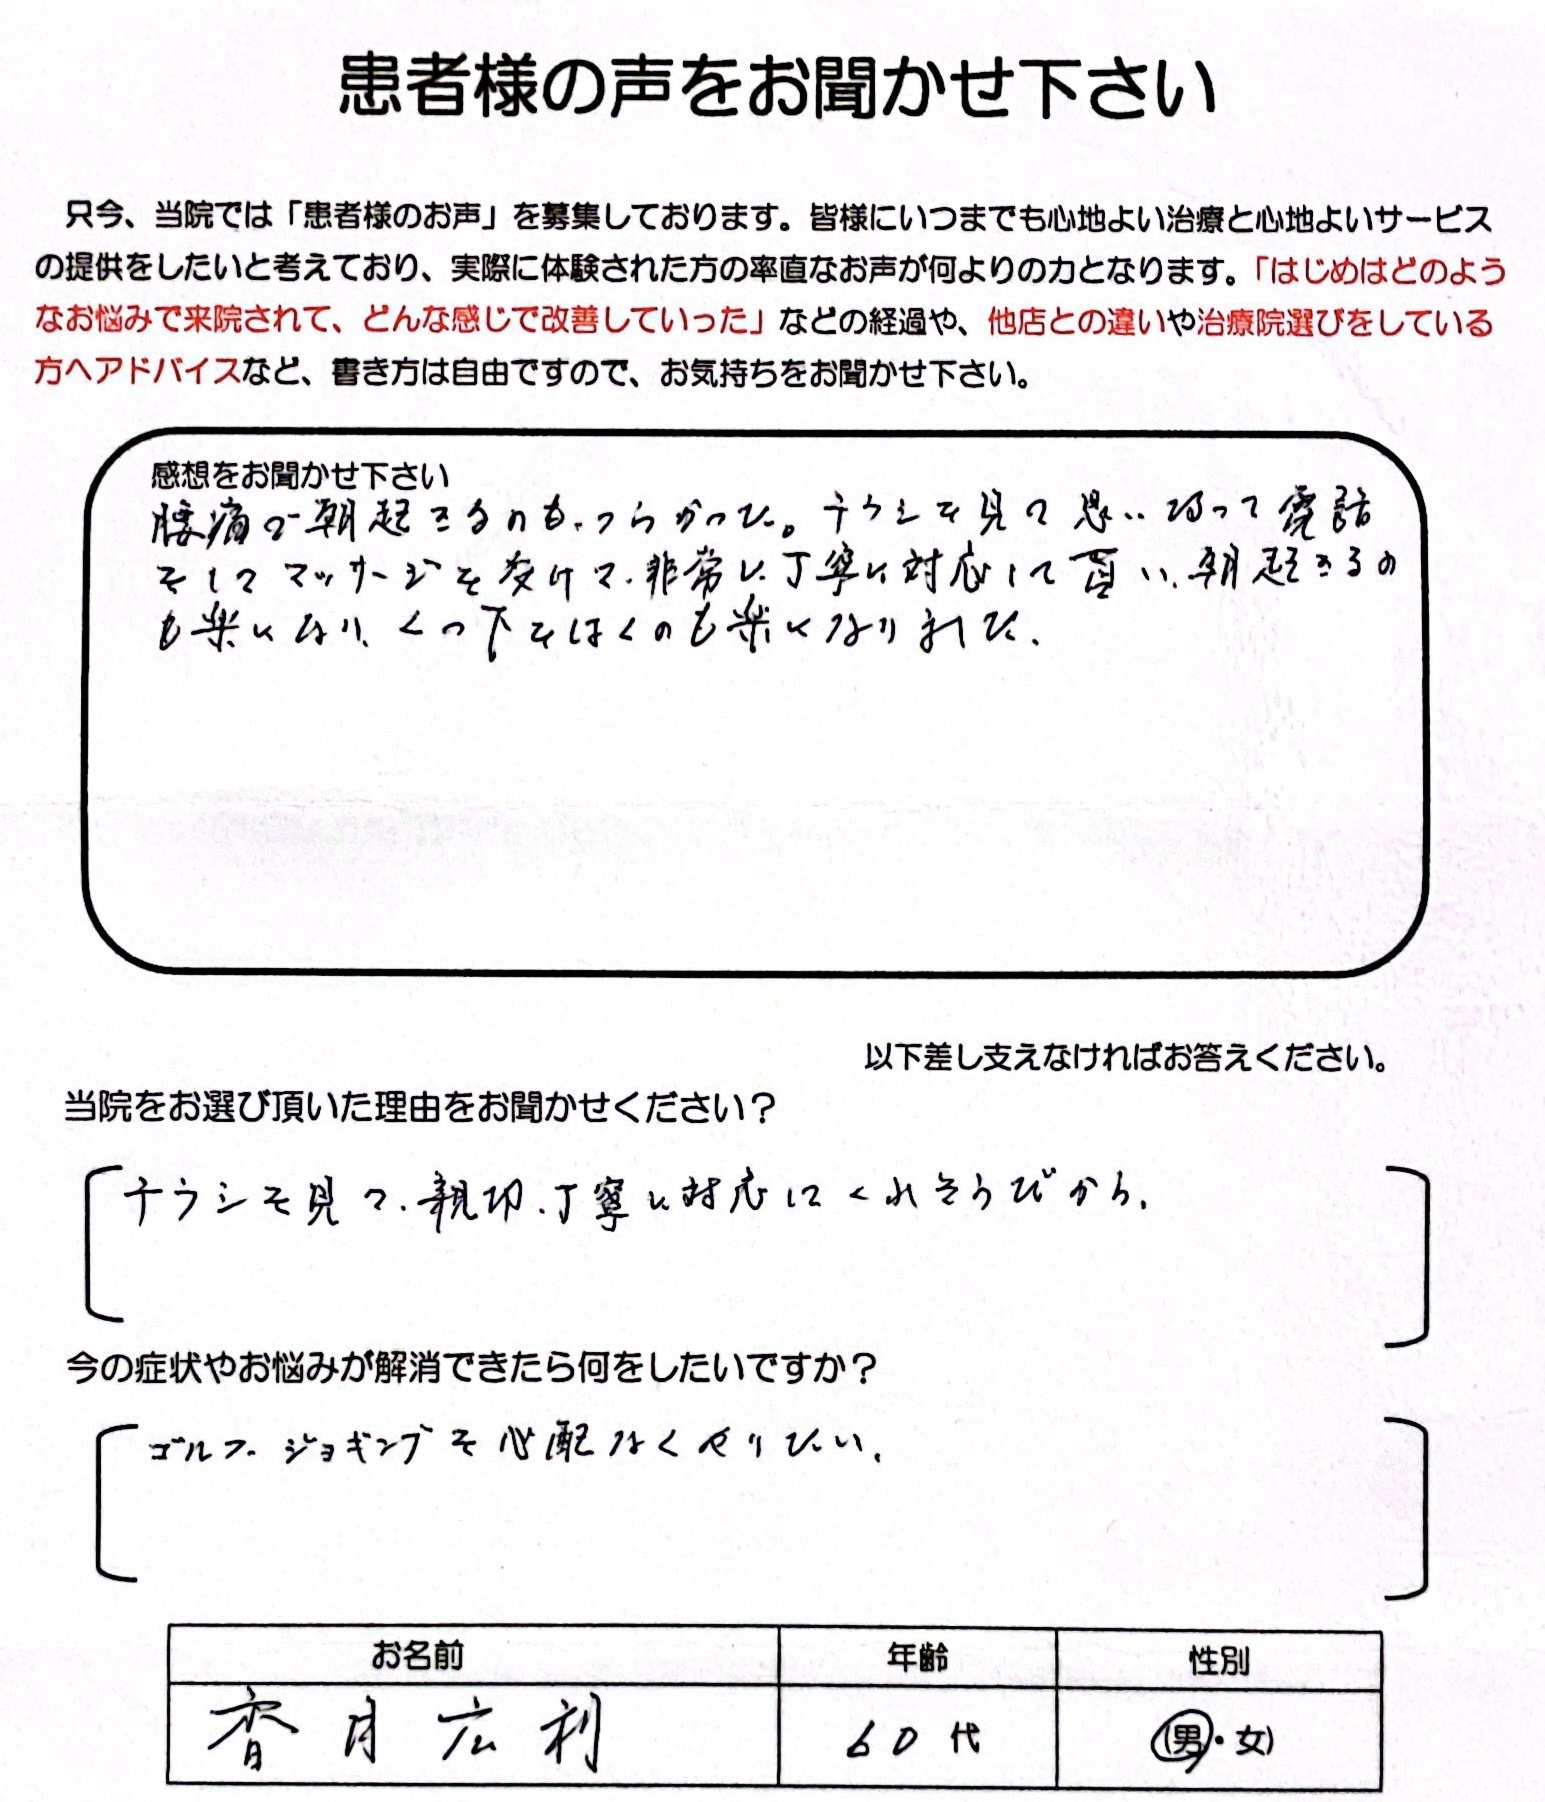 患者様の声をお聞かせ下さい
只今、当院では「患者様のお声」を募集しております。皆様にいつまでも心地よい治療と心地よいサービス
の提供をしたいと考えており、実際に体験された方の率直なお声が何よりの力となります。「はじめはどのよう
なお悩みで来院されて、どんな感じで改善していった」などの経過や、他店との違いや治療院選びをしている
方へアドバイスなど、書き方は自由ですので、お気持ちをお聞かせ下さい。
感想をお聞かせ下さい
腰痛で朝起きるのも、つらかった。チラシを見て思い切って電話
をしてマッサージを受けて、非常に丁寧に対応して貰い、朝起きるの
も楽になり、くつ下をはくのも楽になりました。
以下差し支えなければお答えください。
当院をお選び頂いた理由をお聞かせください？
チラシを見て、親切、丁寧に対応してくれそうだから、
今の症状やお悩みが解消できたら何をしたいですか？
ゴルフ、ジョギングを心配なくやりたい、
お名前 年齢 性別
香月広利 60代 (男・女)